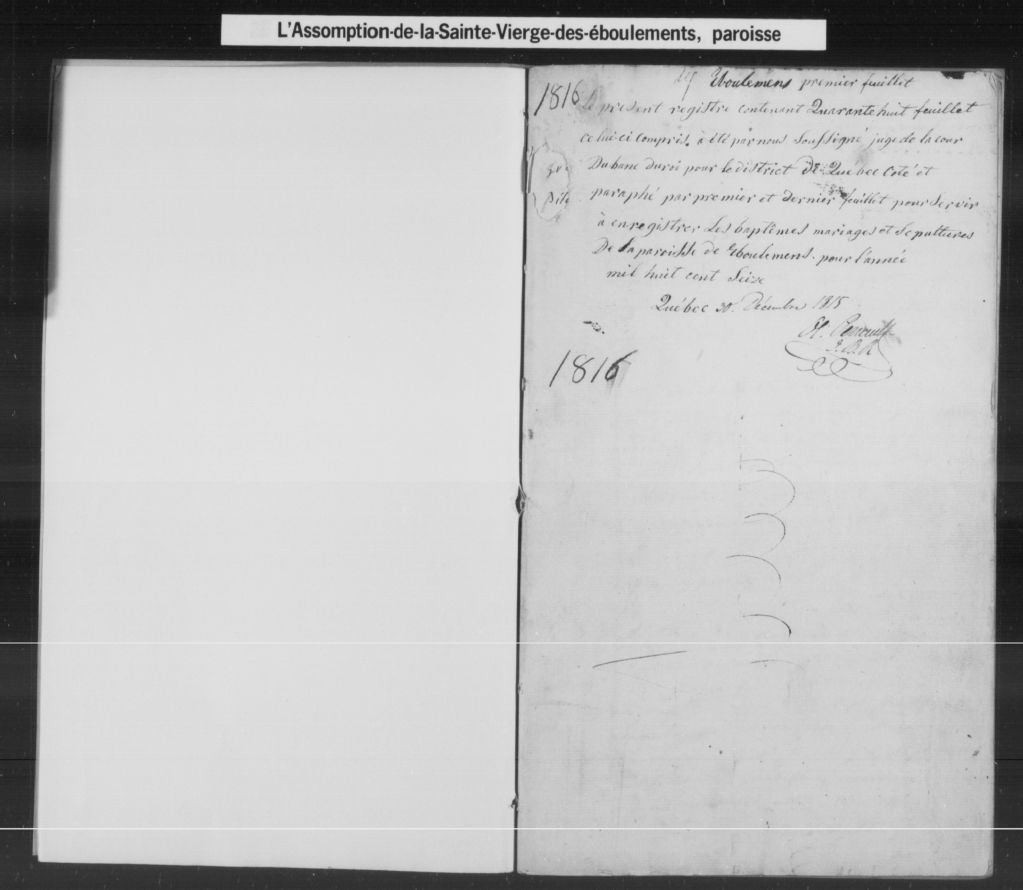 L'Assomption-de-la-Sainte-Vierge-des-éboulements, paroisse
Eboulemens premier feuillet
1816
Le present registre contenant Quarante huit feuillet
celui ci compris, a été par nous Soussigné juge de la cour
Du banc du roi pour le district de Quebec Coté et
paraphé par premier et dernier feuillet pour Servir
à enregistrer Les baptêmes mariages et Sepultures
De la paroisse de Eboulemens. pour l'année
mil huit cent Seize
Québec 30. Décembre 1815
1816